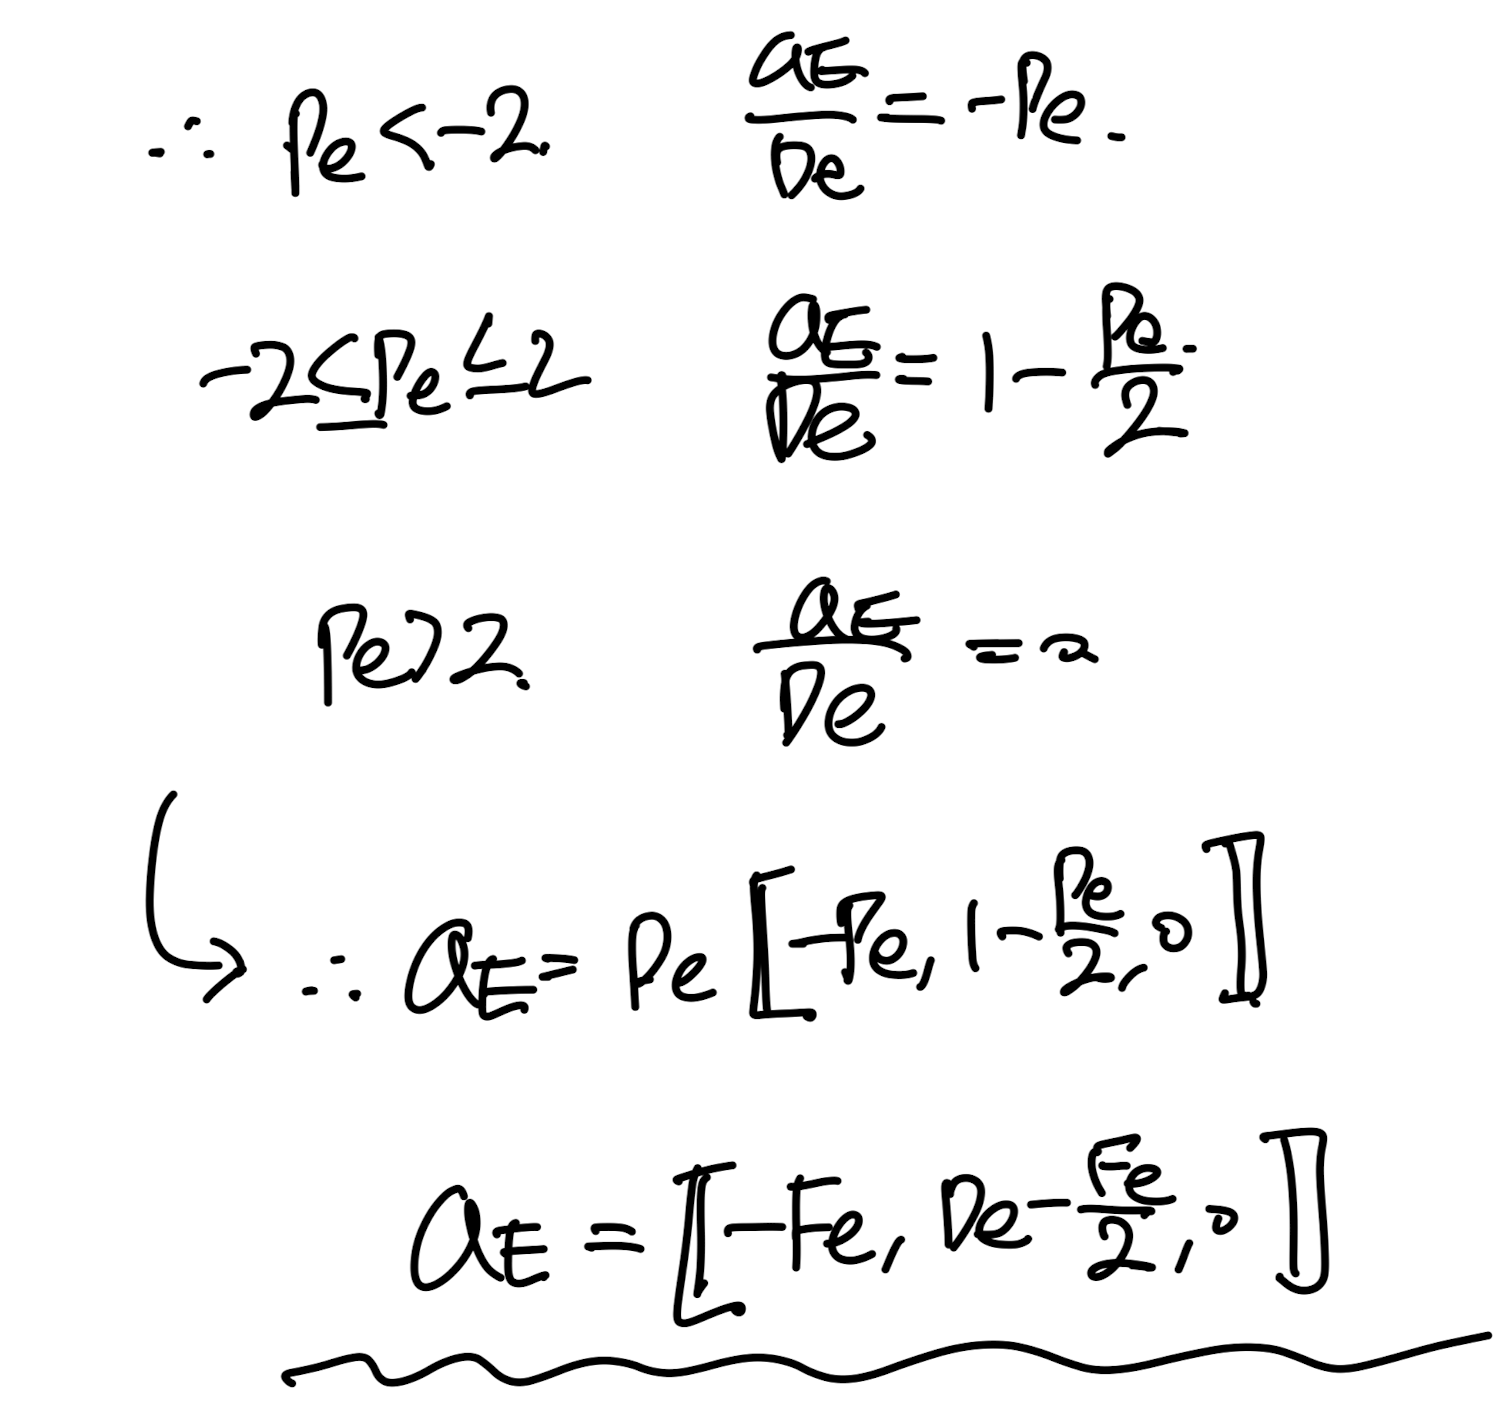 ∴ Pe < -2. aE/De = -Pe.
-2 ≤ Pe ≤ 2 aE/De = 1 - Pe/2
Pe > 2. aE/De = 0
∴ aE = De ⟦-Pe, 1 - Pe/2, 0⟧
aE = ⟦-Fe, De - Fe/2, 0⟧